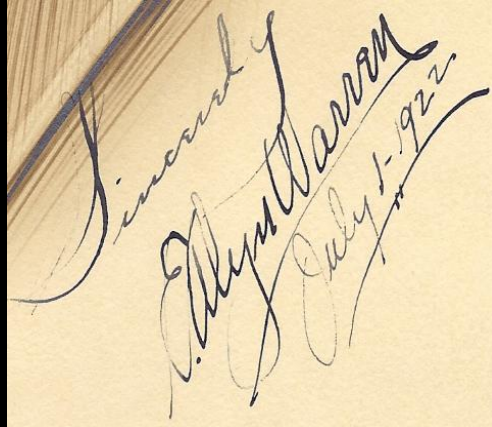 Sincerely
E. Alyn Warren
July 1-1922